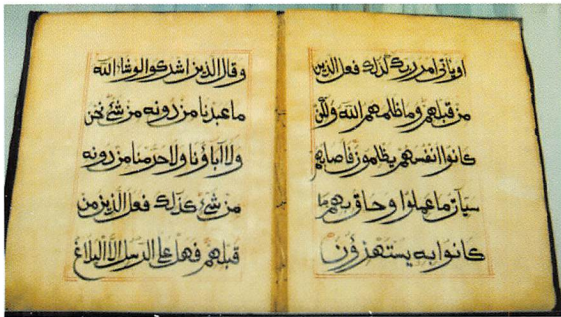 او ياتى امر ربك كذلك فعل الذين
من قبلهم وما ظلمهم الله ولكن
كانوا انفسهم يظلمون فاصابهم
سيات ما عملوا وحاق بهم ما
كانوا به يستهزؤن
وقال الذين اشركوا لوشاء الله
ما عبدنا من دونه من شئ نحن
ولا آباؤنا ولا حرمنا من دونه
من شئ كذلك فعل الذين من
قبلهم فهل على الرسل الا البلاغ